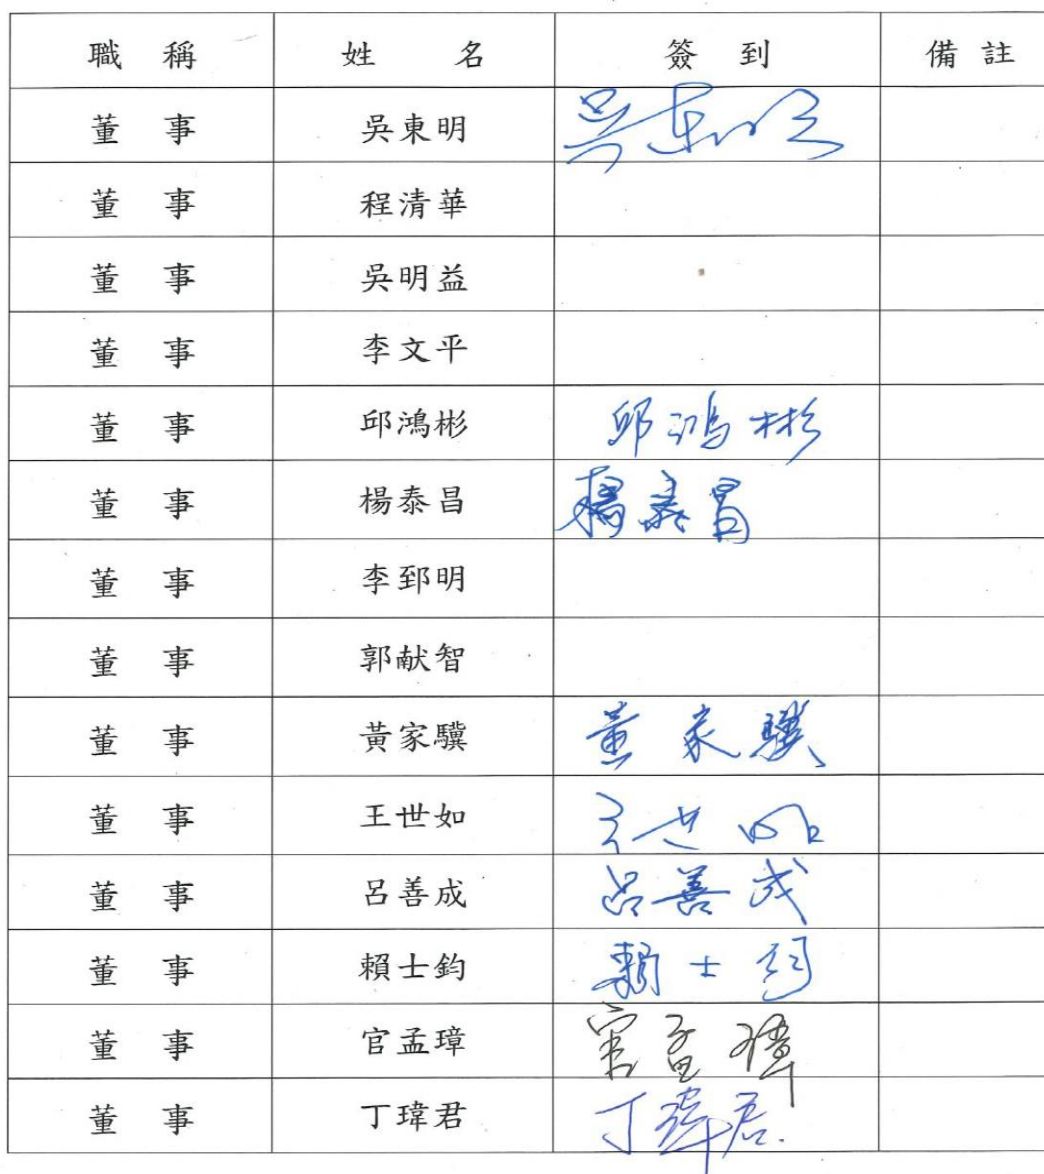 職 稱 姓 名 簽 到 備 註
董 事 吳東明 吳東明
董 事 程清華
董 事 吳明益
董 事 李文平
董 事 邱鴻彬 邱鴻彬
董 事 楊泰昌 楊泰昌
董 事 李郅明
董 事 郭献智
董 事 黃家驥 黃家驥
董 事 王世如 王世如
董 事 呂善成 呂善成
董 事 賴士鈞 賴士鈞
董 事 官孟璋 官孟璋
董 事 丁瑋君 丁瑋君